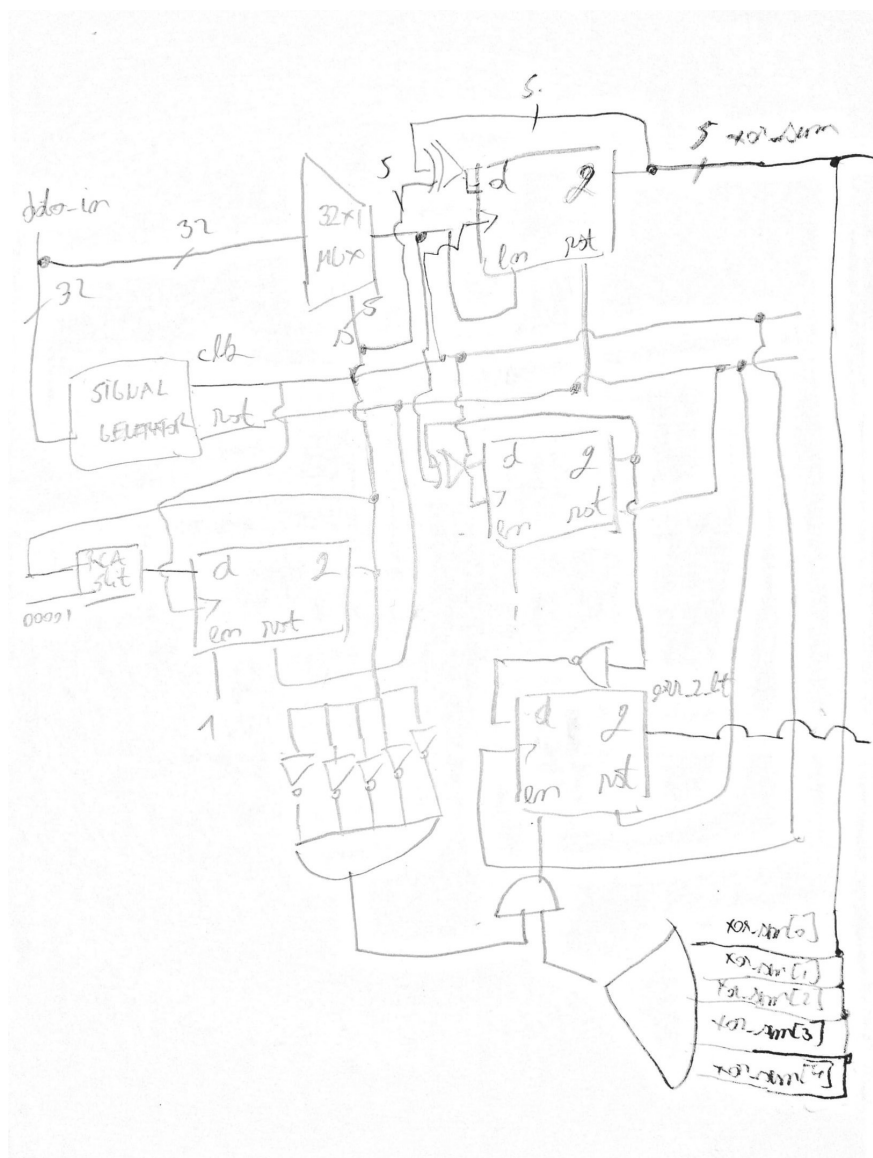 5
5 xor_sum
5
d q
data_in
32
32x1
MUX
en rst
32
5
clk
SIGNAL
GENERATOR
rst
d q
en rst
RCA
5bit
d q
00001
en rst
1
1
err_2_bit
d q
en rst
xor_sum[0]
xor_sum[1]
xor_sum[2]
xor_sum[3]
xor_sum[4]